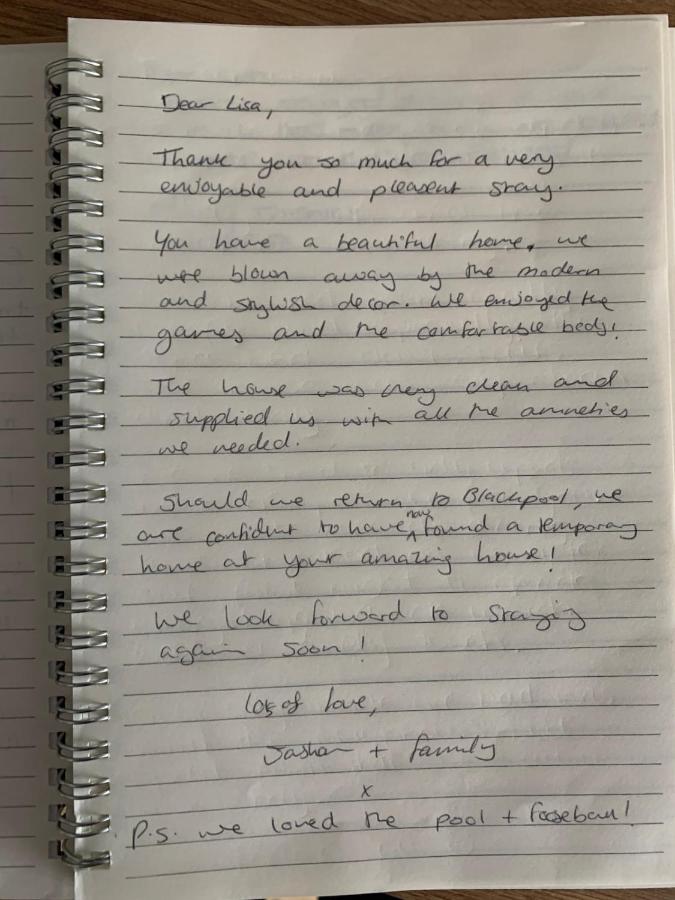 Dear Lisa,
Thank you so much for a very
enjoyable and pleasent stay.
You have a beautiful home, we
were blown away by the modern
and stylish decor. We enjoyed the
games and the comfortable beds!
The house was very clean and
supplied us with all the amneties
we needed.
Should we return to Blackpool, we
are confident to have now found a temporary
home at your amazing house!
We look forward to staying
again soon!
lots of love,
+ family
x
P.s. we loved the pool + fooseball!